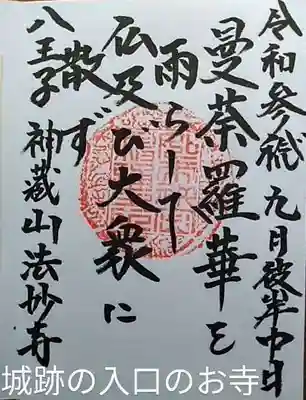 令和参祀 九月彼岸中日
曼荼羅華を
雨らして
仏及び大衆に
散ず
八王子 神蔵山法妙寺
城跡の入口のお寺